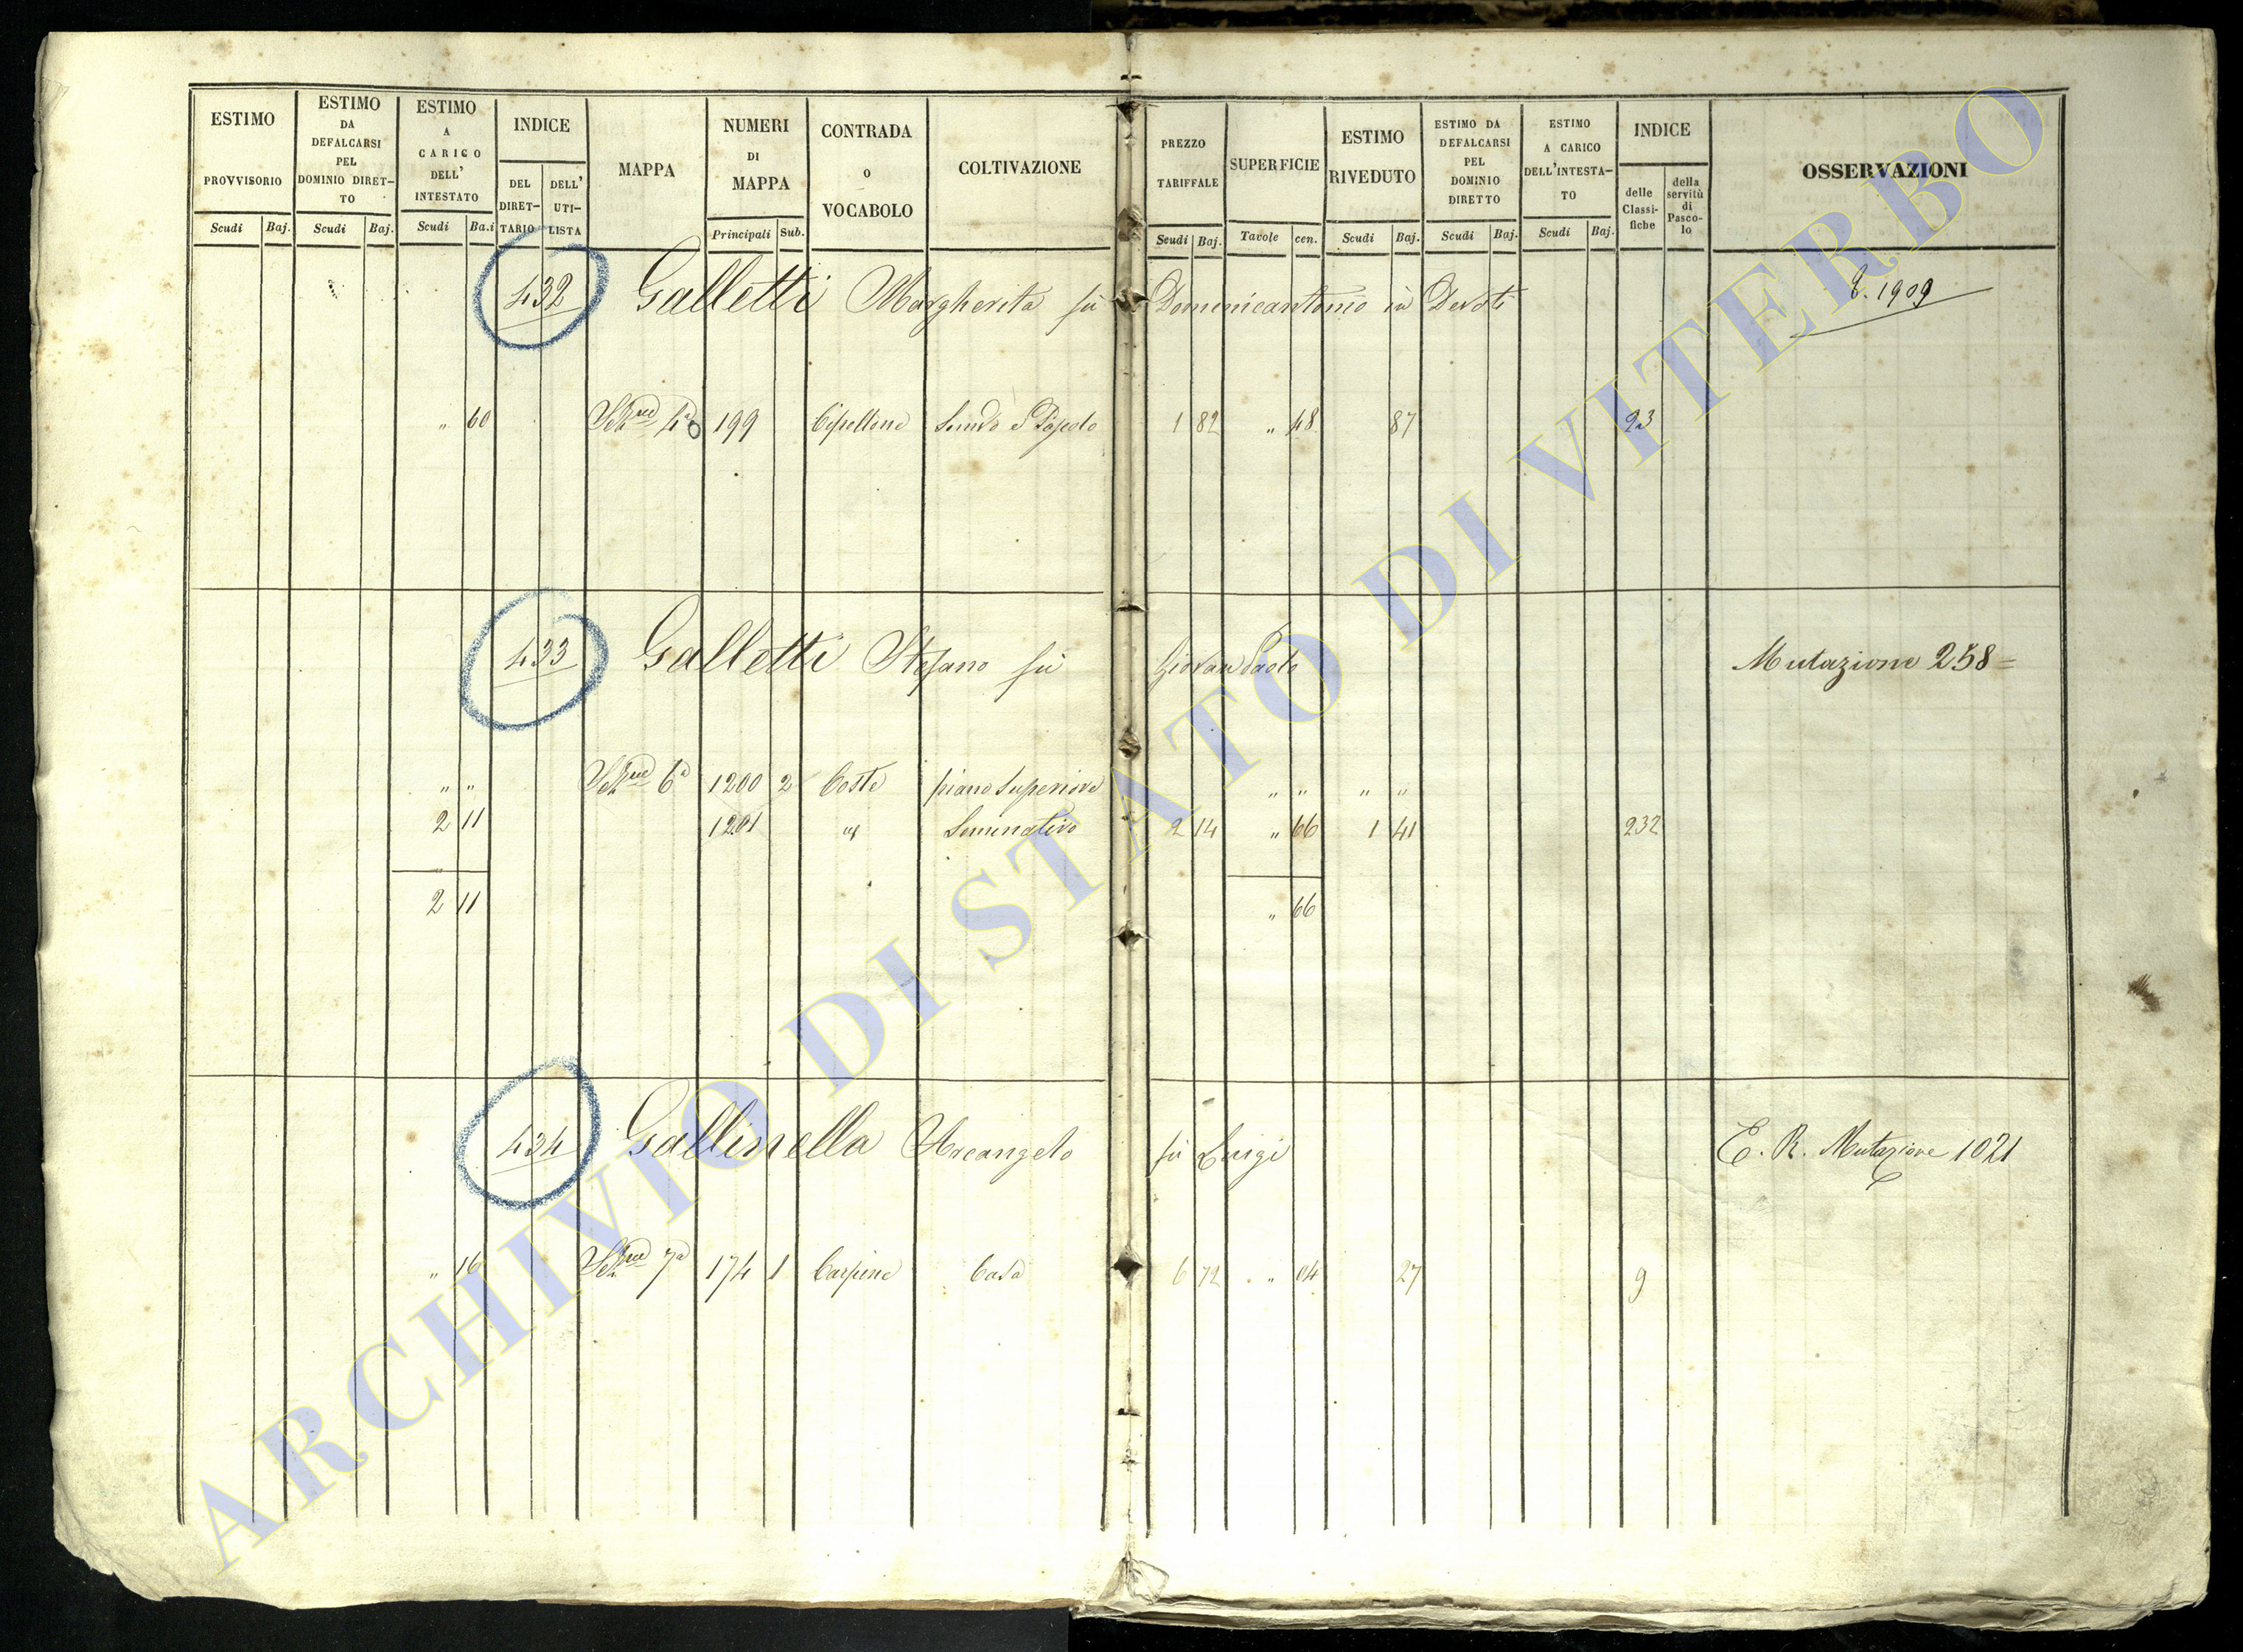 ESTIMO PROVVISORIO Scudi Baj.
ESTIMO DA DEFALCARSI PEL DOMINIO DIRET-TO Scudi Baj.
ESTIMO A CARICO DELL' INTESTATO Scudi Ba.i
INDICE DEL DIRET-TARIO DELL' UTI-LISTA
MAPPA
NUMERI DI MAPPA Principali Sub.
CONTRADA O VOCABOLO
COLTIVAZIONE
PREZZO TARIFFALE Scudi Baj.
SUPERFICIE Tavole cen.
ESTIMO RIVEDUTO Scudi Baj.
ESTIMO DA DEFALCARSI PEL DOMINIO DIRETTO Scudi Baj.
ESTIMO A CARICO DELL'INTESTA-TO Scudi Baj.
INDICE delle Classi-fiche della servitù di Pasco-lo
OSSERVAZIONI
432 Galletti Margherita fu Domenicantonio in Devoti 1909
" 60 199 1 82 " 48 87 23
433 Galletti Stefano fu Giovan Paolo Mutazione 258 =
" " 6a 1200 2 Coste piano Superiore " " " "
2 11 1201 Seminativo 2 14 " 66 1 41 232
2 11 " 66
434 Gallinella Arcangelo fu Luigi E. R. Mutazione 1021
" 16 7a 174 1 Carpine Casa 6 72 " 04 27 9
ARCHIVIO DI STATO DI VITERBO